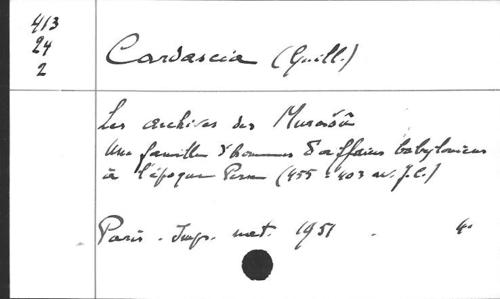 413
24
2
Cardascia (Guill.)
Les archives des Murasšû
Une famille d'hommes d'affaires babyloniens
à l'époque Perse (455-403 av. J.C.)
Paris. Imp. nat. 1951. 4°